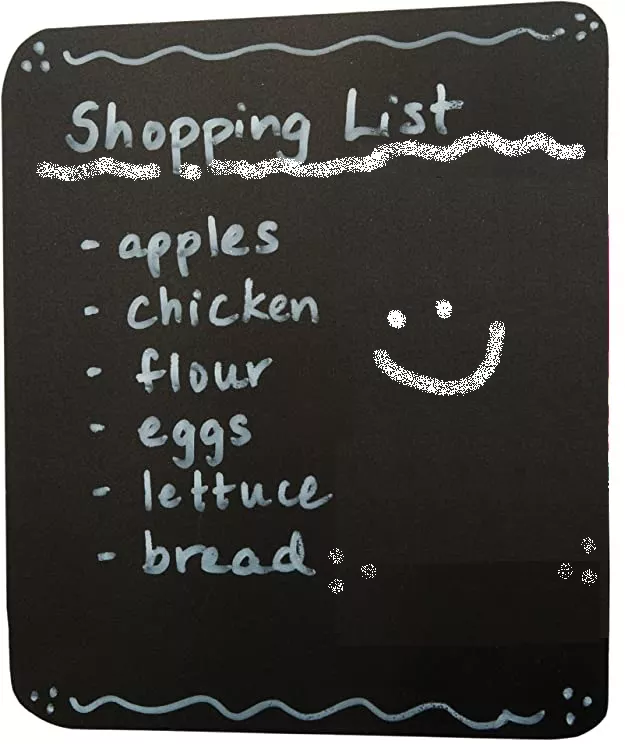 Shopping List
- apples
- chicken
- flour
- eggs
- lettuce
- bread